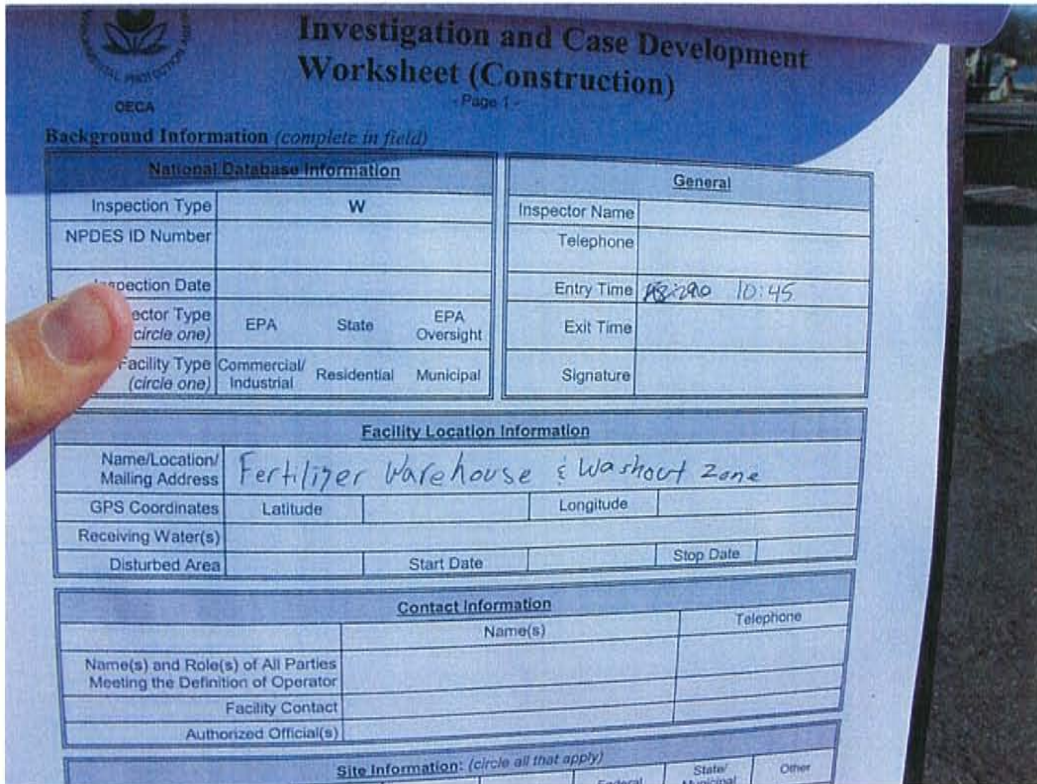 Investigation and Case Development
Worksheet (Construction)
- Page 1 -
OECA
Background Information (complete in field)
National Database Information
Inspection Type W
NPDES ID Number
Inspection Date
ector Type
(circle one)
EPA State EPA
Oversight
Facility Type
(circle one)
Commercial/
Industrial
Residential Municipal
General
Inspector Name
Telephone
Entry Time 10:45
Exit Time
Signature
Facility Location Information
Name/Location/
Mailing Address
Fertilizer Warehouse & Washout Zone
GPS Coordinates Latitude Longitude
Receiving Water(s)
Disturbed Area Start Date Stop Date
Contact Information
Name(s) Telephone
Name(s) and Role(s) of All Parties
Meeting the Definition of Operator
Facility Contact
Authorized Official(s)
Site Information: (circle all that apply)
Federal State/
Municipal
Other